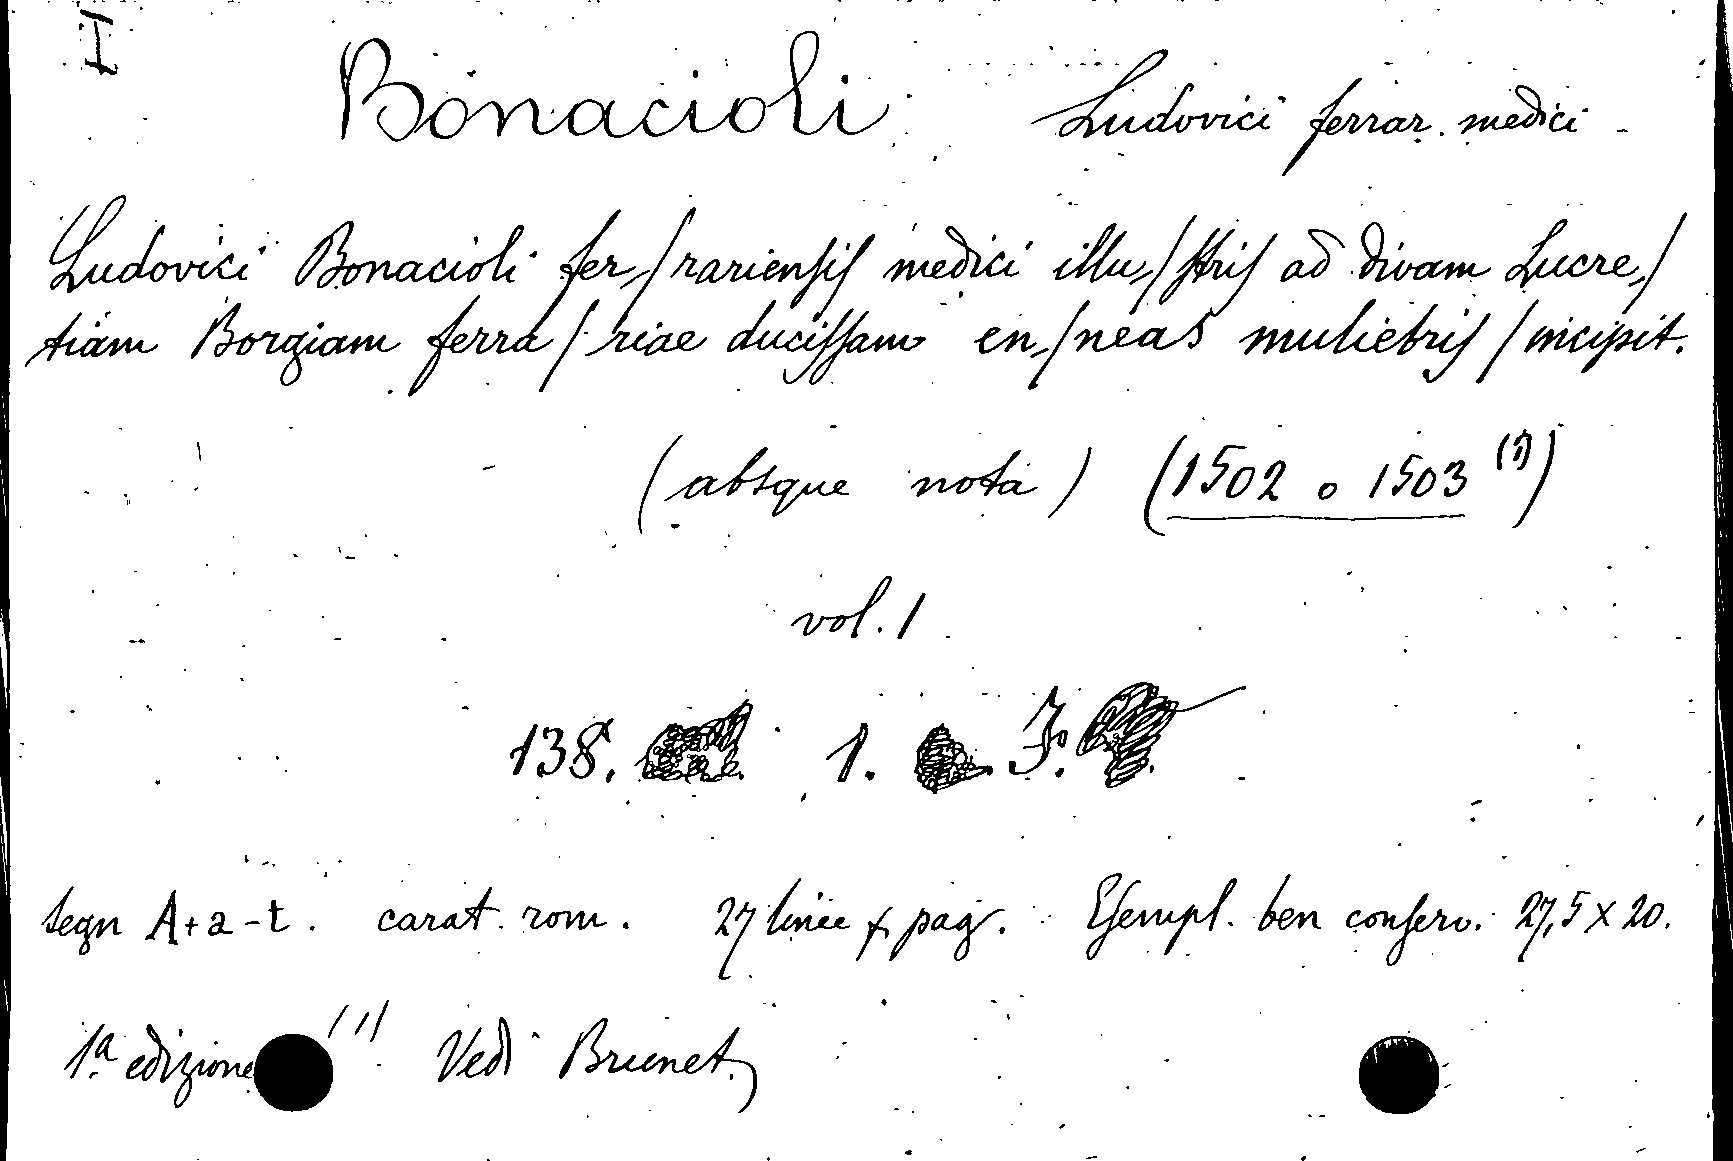 H
Bonacioli Ludovici ferrar. medici
Ludovici Bonacioli fer,/rariensis medici illu,/stris ad divam Lucre,/
tiam Borgiam ferra/riae ducissam en,/neas muliebris/incipit.
(absque nota) (1502 o 1503 (1))
vol. 1
138. 1. J.
segn A+a-t. carat. rom. 27 linee p. pag. Esempl. ben conserv. 27,5 x 20.
1.a edizione (1) Vedi Brunet.